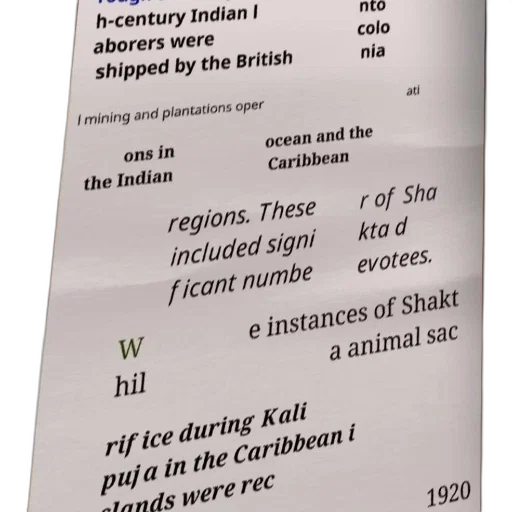 h-century Indian l
aborers were
shipped by the British
nto
colo
nia
l mining and plantations oper
ati
ons in
the Indian
ocean and the
Caribbean
regions. These
included signi
ficant numbe
r of Sha
kta d
evotees.
W
hil
e instances of Shakt
a animal sac
rifice during Kali
puja in the Caribbean i
slands were rec
1920